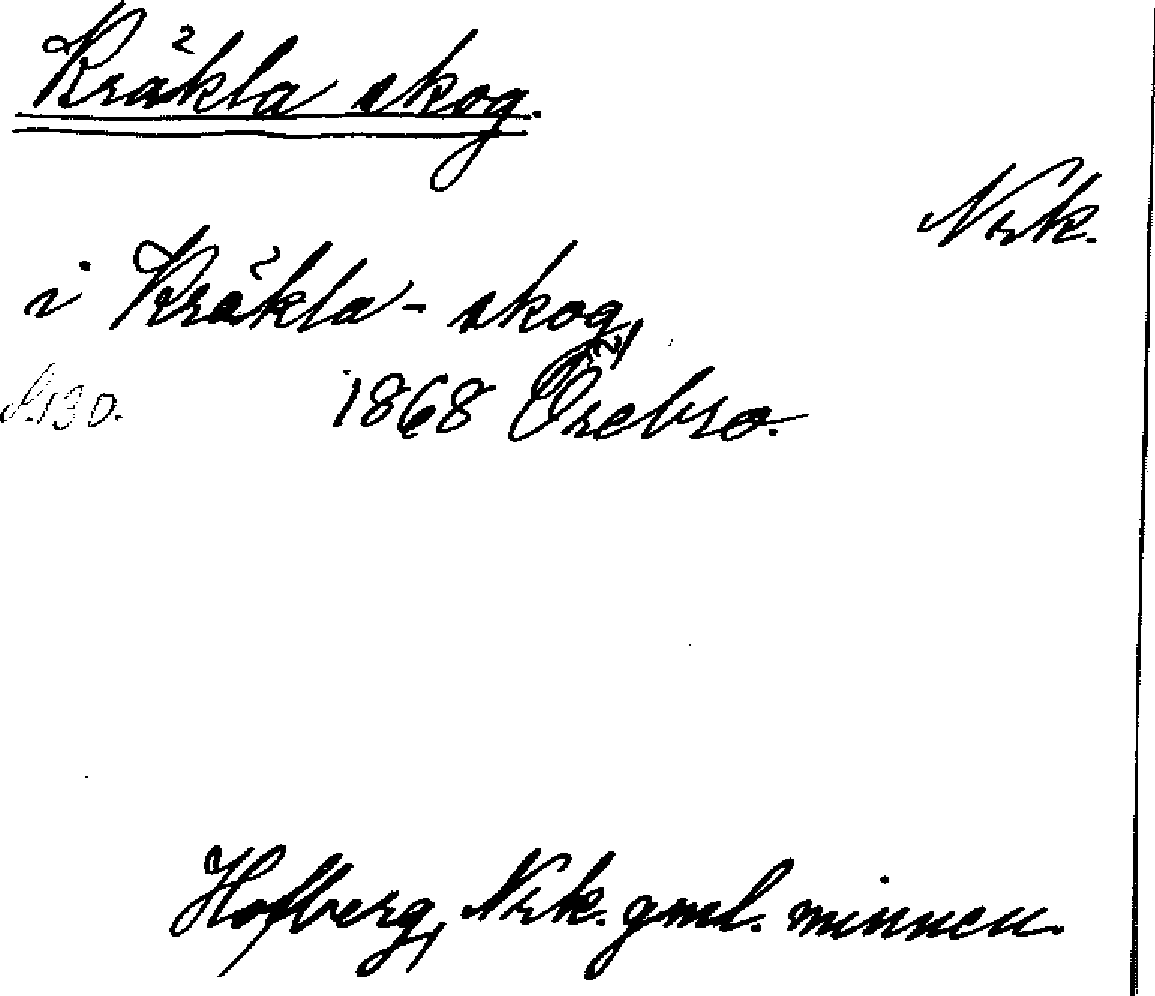 Kräkla skog.
Nrk.
i Kräkla-skog,
s. 130. 1868 Örebro.
Hofberg, Nrk. gml. minnen.